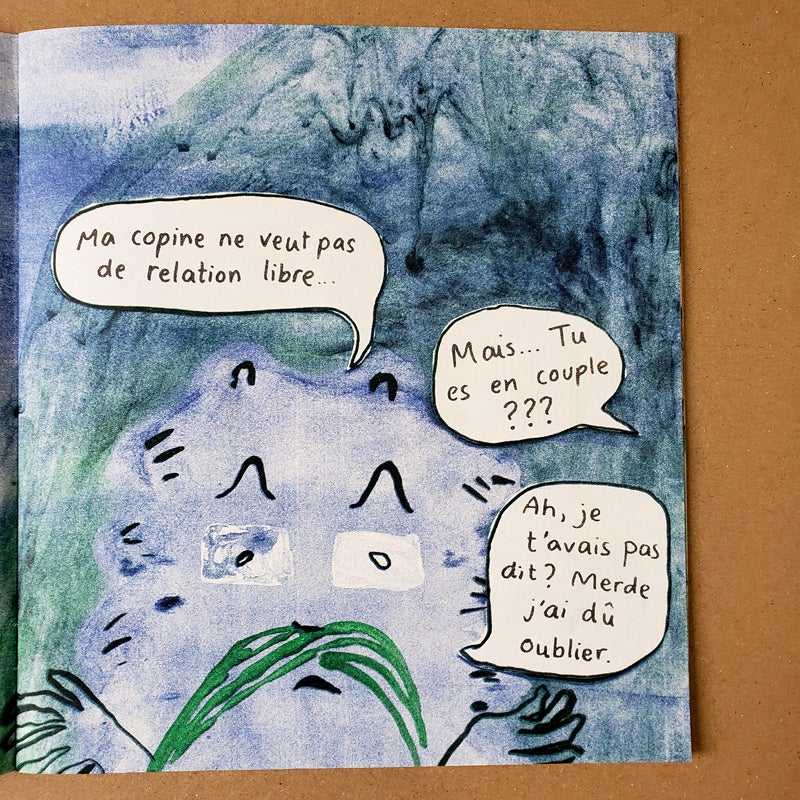 Ma copine ne veut pas
de relation libre...
Mais... Tu
es en couple
???
Ah, je
t'avais pas
dit? Merde
j'ai dû
oublier.